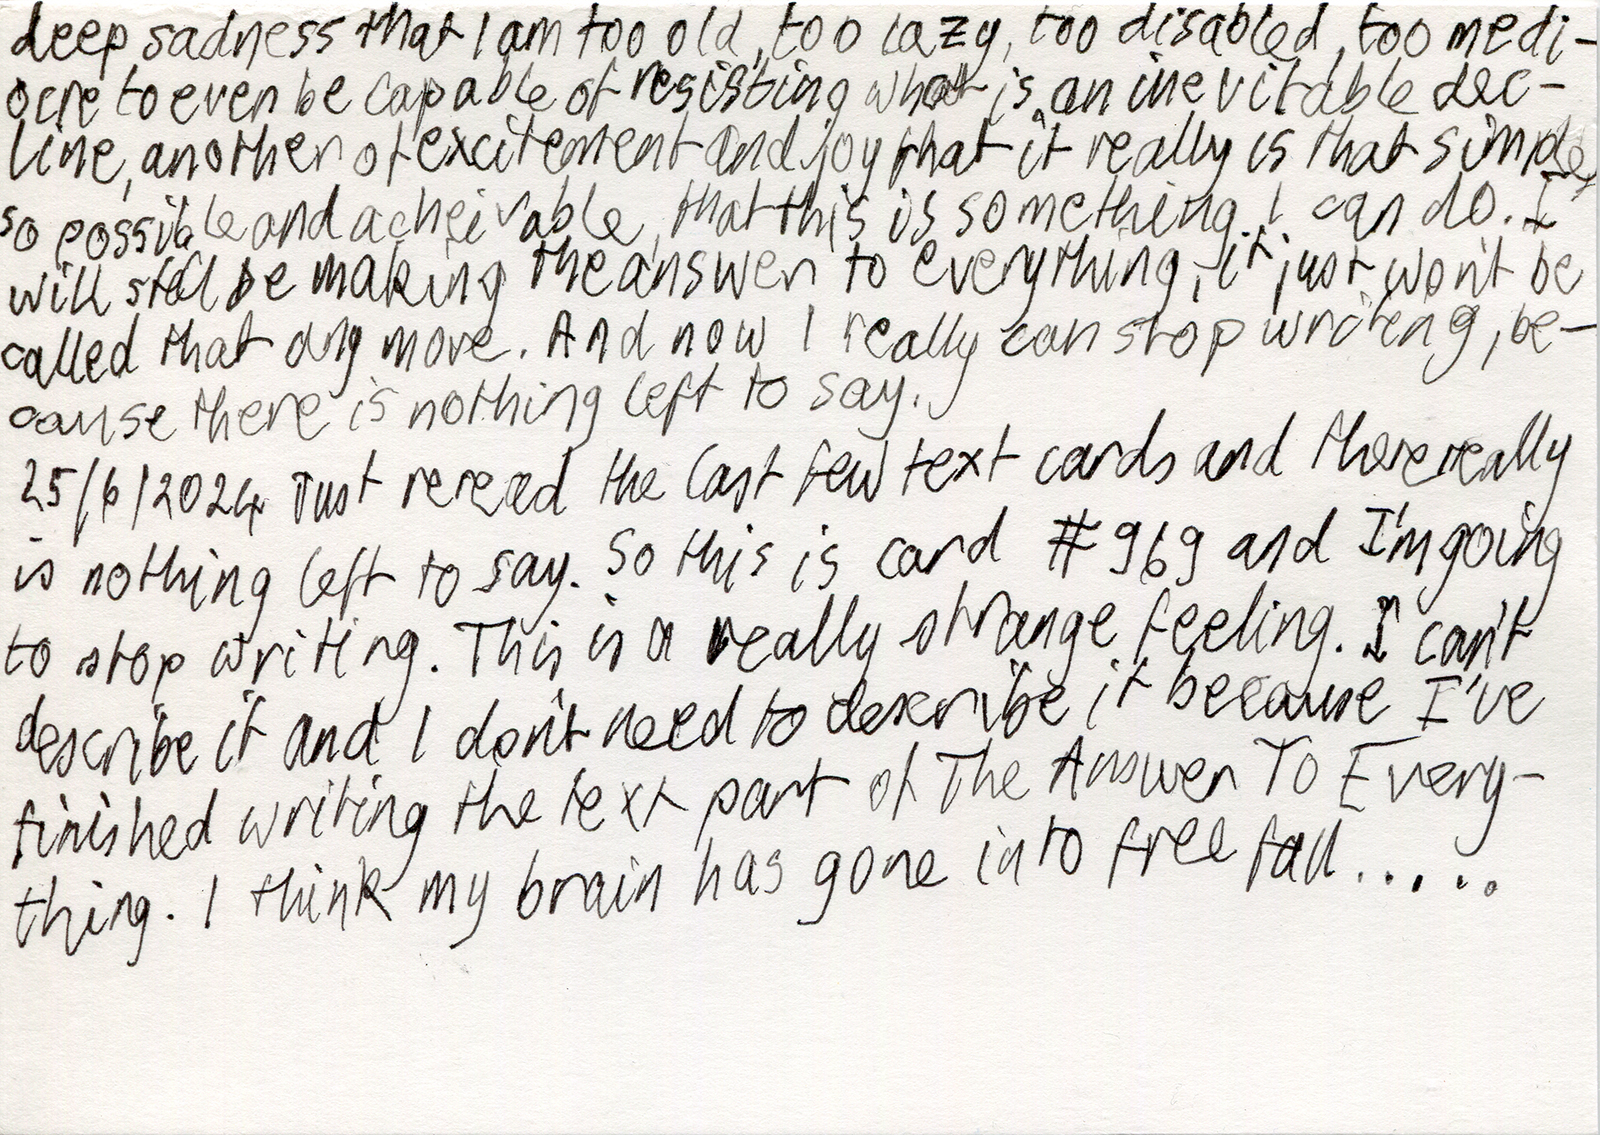 deep sadness that I am too old, too lazy, too disabled, too medi-
ocre to even be capable of resisting what is an inevitable dec-
line, another of excitement and joy that it really is that simple,
so possible and acheivable, that this is something I can do. I
will still be making the answer to everything, it just won't be
called that any more. And now I really can stop writing, be-
cause there is nothing left to say.
25/6/2024 Just reread the last few text cards and there really
is nothing left to say. So this is card #969 and I'm going
to stop writing. This is a really strange feeling. I can't
describe it and I don't need to describe it because I've
finished writing the text part of The Answer To Every-
thing. I think my brain has gone into free fall.....